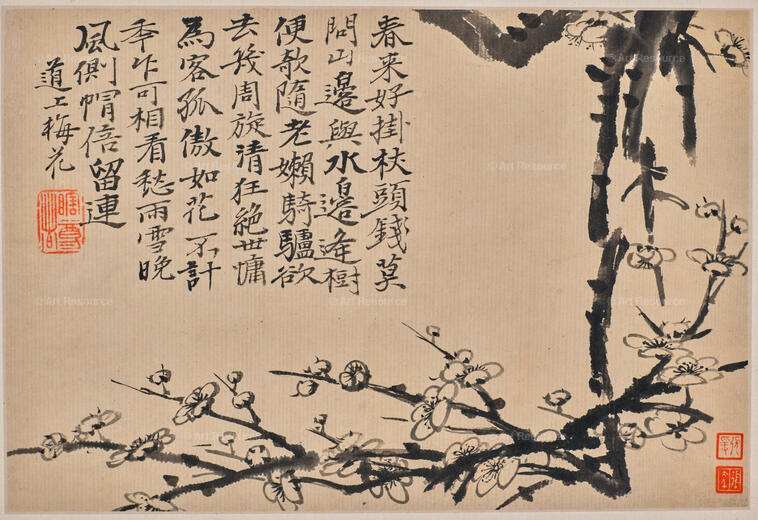 春来好掛杖頭錢莫
問山邊與水邉逢樹
便歌隨老嬾騎驢欲
去幾周旋清狂絕世慵
為客孤傲如花不計
季乍可相看愁雨雪晚
風側帽倍留連
道上梅花
瞎尊者
© Art Resource
© Art Resource
© Art Resource
© Art Resource
© Art Resource
© Art Resource
© Art Resource
© Art Resource